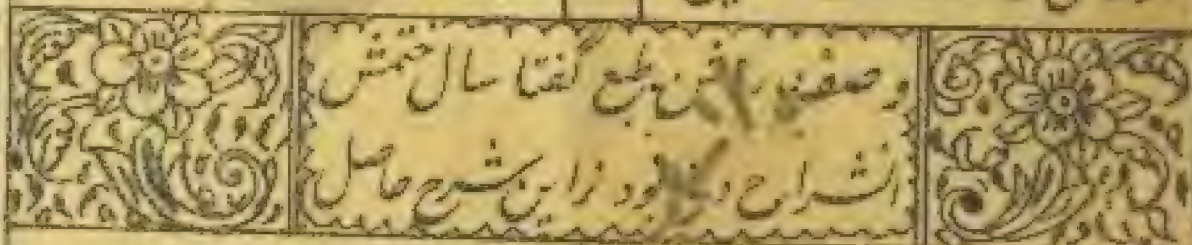 و صفی ... طبع گفتا سال ختمش
انشراح ... بود زاین شرح حاصل